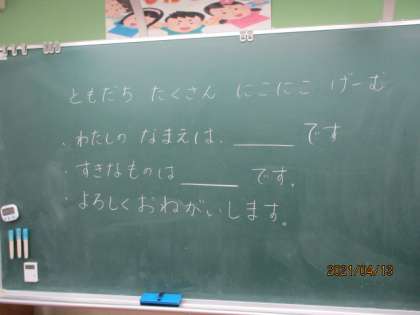 ともだち たくさん にこにこ げーむ
・わたしの なまえは、＿＿＿ です
・すきなものは＿＿＿ です。
・よろしくおねがいします。
2021/04/13